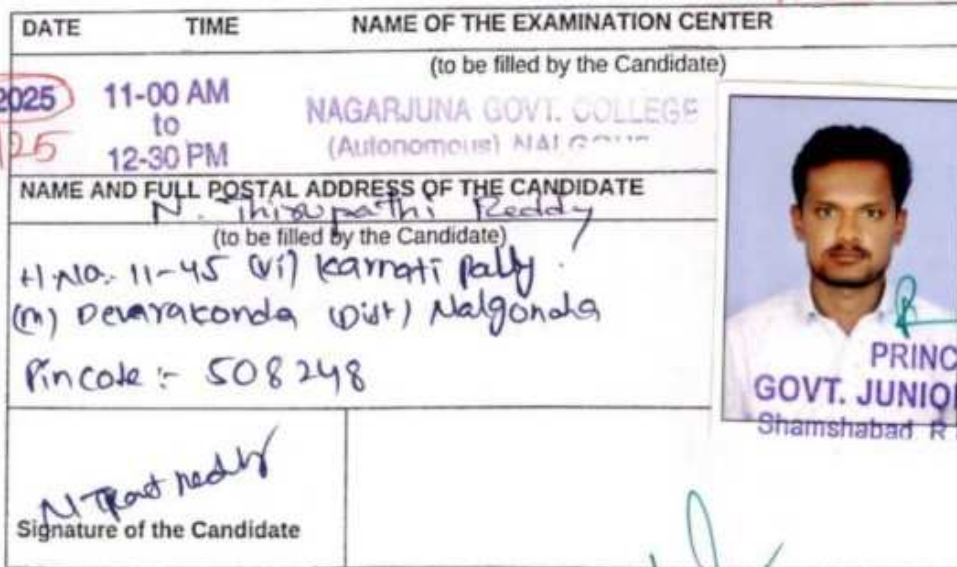 DATE TIME NAME OF THE EXAMINATION CENTER
(to be filled by the Candidate)
2025 11-00 AM
to
12-30 PM
25
NAGARJUNA GOVT. COLLEGE
(Autonomous)
NAME AND FULL POSTAL ADDRESS OF THE CANDIDATE
N. Thirupathi Reddy
(to be filled by the Candidate)
H.No. 11-45 (Vi) Karnati Pally.
(M) Devarakonda (Dist) Nalgonda
Pincode :- 508248
PRINC
GOVT. JUNIO
Shamshabad R
Signature of the Candidate